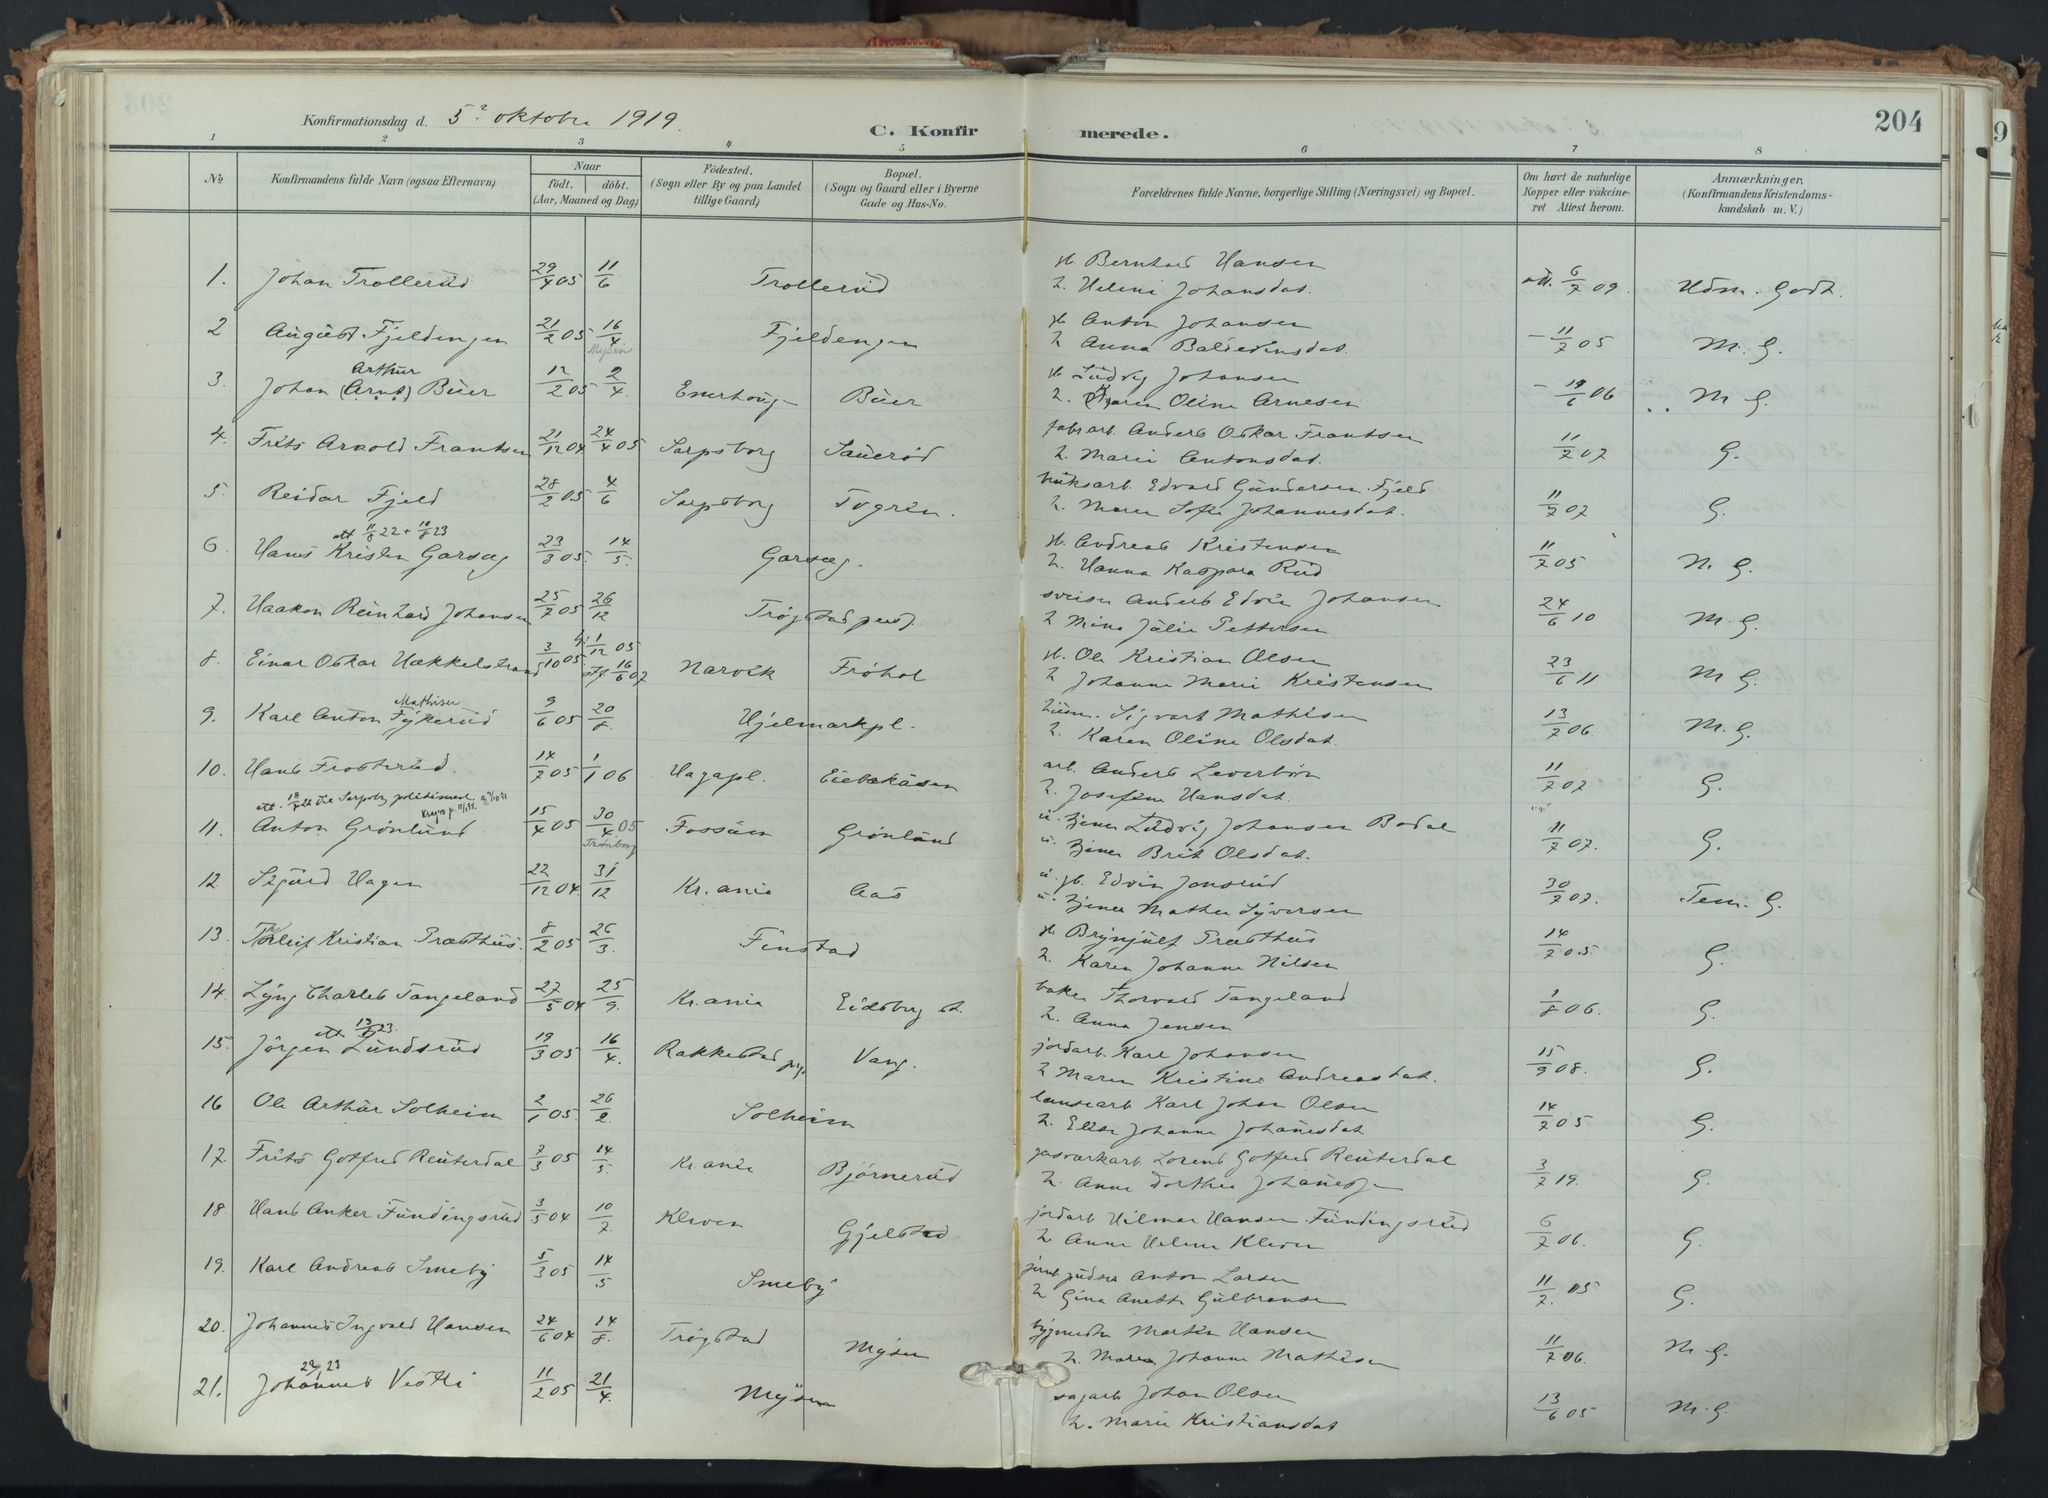 204
Konfirmationsdag d. 5. oktober 1919.
C. Konfir merede.
1 2 3 4 5 6 7 8
No. Konfirmandens fulde Navn (ogsaa Efternavn) Naar Födested. Bopæl. Forældrenes fulde Navne, borgerlige Stilling (Næringsvei) og Bopæl. Om havt de naturlige Anmærkninger.
födt. döbt. (Sogn eller By og paa Landet (Sogn og Gaard eller i Byerne Kopper eller vakcine- (Konfirmandens Kristendoms-
(Aar, Maaned og Dag) tillige Gaard) Gade og Hus-No. ret. Attest herom. kundskab m. V.)
1. Johan Trollerud 29/4 05 11/6 Trollerud Bernhard Hansen 6/7 09. Udm. Godt.
h. Helene Johansdat.
2 August Fjeldengen 21/2 05 16/4 Fjeldengen Anton Johansen – 11/7 05 M. G.
Mysen h. Anna Baltedinsdat.
Arthur
3. Johan (Arnt) Buer 12/2 05 2/4 Enerhaug Buer Ludvig Johansen – 19/6 06 M G.
h. Karen Oline Arnesen
4. Frits Arnold Frantsen 21/12 04 24/4 05 Sarpsborg Sauerød fabrarb. Anders Oskar Frantsen 11/7 07 G.
h. Marie Antonsdat.
5. Reidar Fjeld 28/2 05 4/6 Sarpsborg Togrén. bruksarb. Edvard Gundersen Fjeld 11/7 07 G.
h. Maren Sofie Johannesdat.
att 11/8 22 + 10/8 23
6. Hans Kristen Garseg 23/3 05. 14/5. Garseg. Andreas Kristensen 11/7 05 M. G.
h. Hanna Kaspara Rud
7. Haakon Reinhard Johansen 25/7 05 26/12 Trøgstad prestg. sveiser Anders Edvin Johansen 24/6 10 M. G.
h Mina Julie Pettersen
8. Einar Oskar Hækkelstrand 3/10 05 1/12 05 Narvik Frøhol Ole Kristian Olsen 23/6 11 M G.
stf 16/6 07 h Johanne Marie Kristensen
Mathisen
9. Karl Anton Fykerud 9/6 05 20/8. Hjelmarkpl. Sigvart Mathisen 13/7 06. M. G.
h. Karen Oline Olsdat.
10. Hans Frosterud. 14/7 05 1/1 06 Hagapl. Eiebakåsen arb. Anders Leverbøn 11/7 07 G.
h. Josefine Hansdat.
11. Anton Grønlund 15/4 05 30/4 05 Fossum Grønlund u. tjener Ludvig Johansen Bodal 11/7 07. G.
Trømborg u. tjener Brit Olsdat.
12 Sigurd Hagen 22/12 04. 31/12 Kr.ania Aas u. Edvin Jonsrud 30/7 07. Tem. G.
u. tjener Mathea Syversen
13. Thorleif Kristian Præsthus. 8/2 05 26/3. Finstad Brynjulf Præsthus 14/7 05 G.
h. Karen Johanne Nilsen
14. Lyng Charles Tangeland 27/5 04 25/9. Kr.ania Eidsberg st. baker Thorvald Tangeland 1/8 06. G.
h. Anna Jensen
att 23.
15. Jørgen Lundsrud 19/3 05 16/4. Rakkestad pgj. Vang. jordarb. Karl Johansen 15/9 08. G.
h Maren Kristine Andreasdat.
16 Ole Arthur Solheim 2/1 05 26/2. Solheim Karl Johan Olsen 14/7 05 G.
h. Ellen Johanne Johanesdat
17. Frits Gotfred Reuterdal 7/3 05 14/5. Kr.ania Bjørnerud gasværkarb. Lorens Gotfred Reuterdal 3/7 19. G.
h. Anne Dorthea Johanessen
18. Hans Anker Fundingsrud 3/5 04 10/7 Kleven Gjelstad jordarb Hilmar Hansen Fundingsrud 6/7 06. G.
h Anne Helene Kleven
19. Karl Andreas Smeby 5/3 05 14/5 Smeby Anton Larsen 11/7. 05 G.
h Gina Anette Gulbransen
20. Johannes Ingvald Hansen 24/6 04 14/8. Trøgstad Mysen bygmester Martin Hansen 11/7 06. M G.
h. Maren Johanne Mathisen
21. Johannes Vestli 11/2 05 21/4. Mysen sagarb Johan Olsen 13/6 05 M. G.
h. Marie Kristiansdat